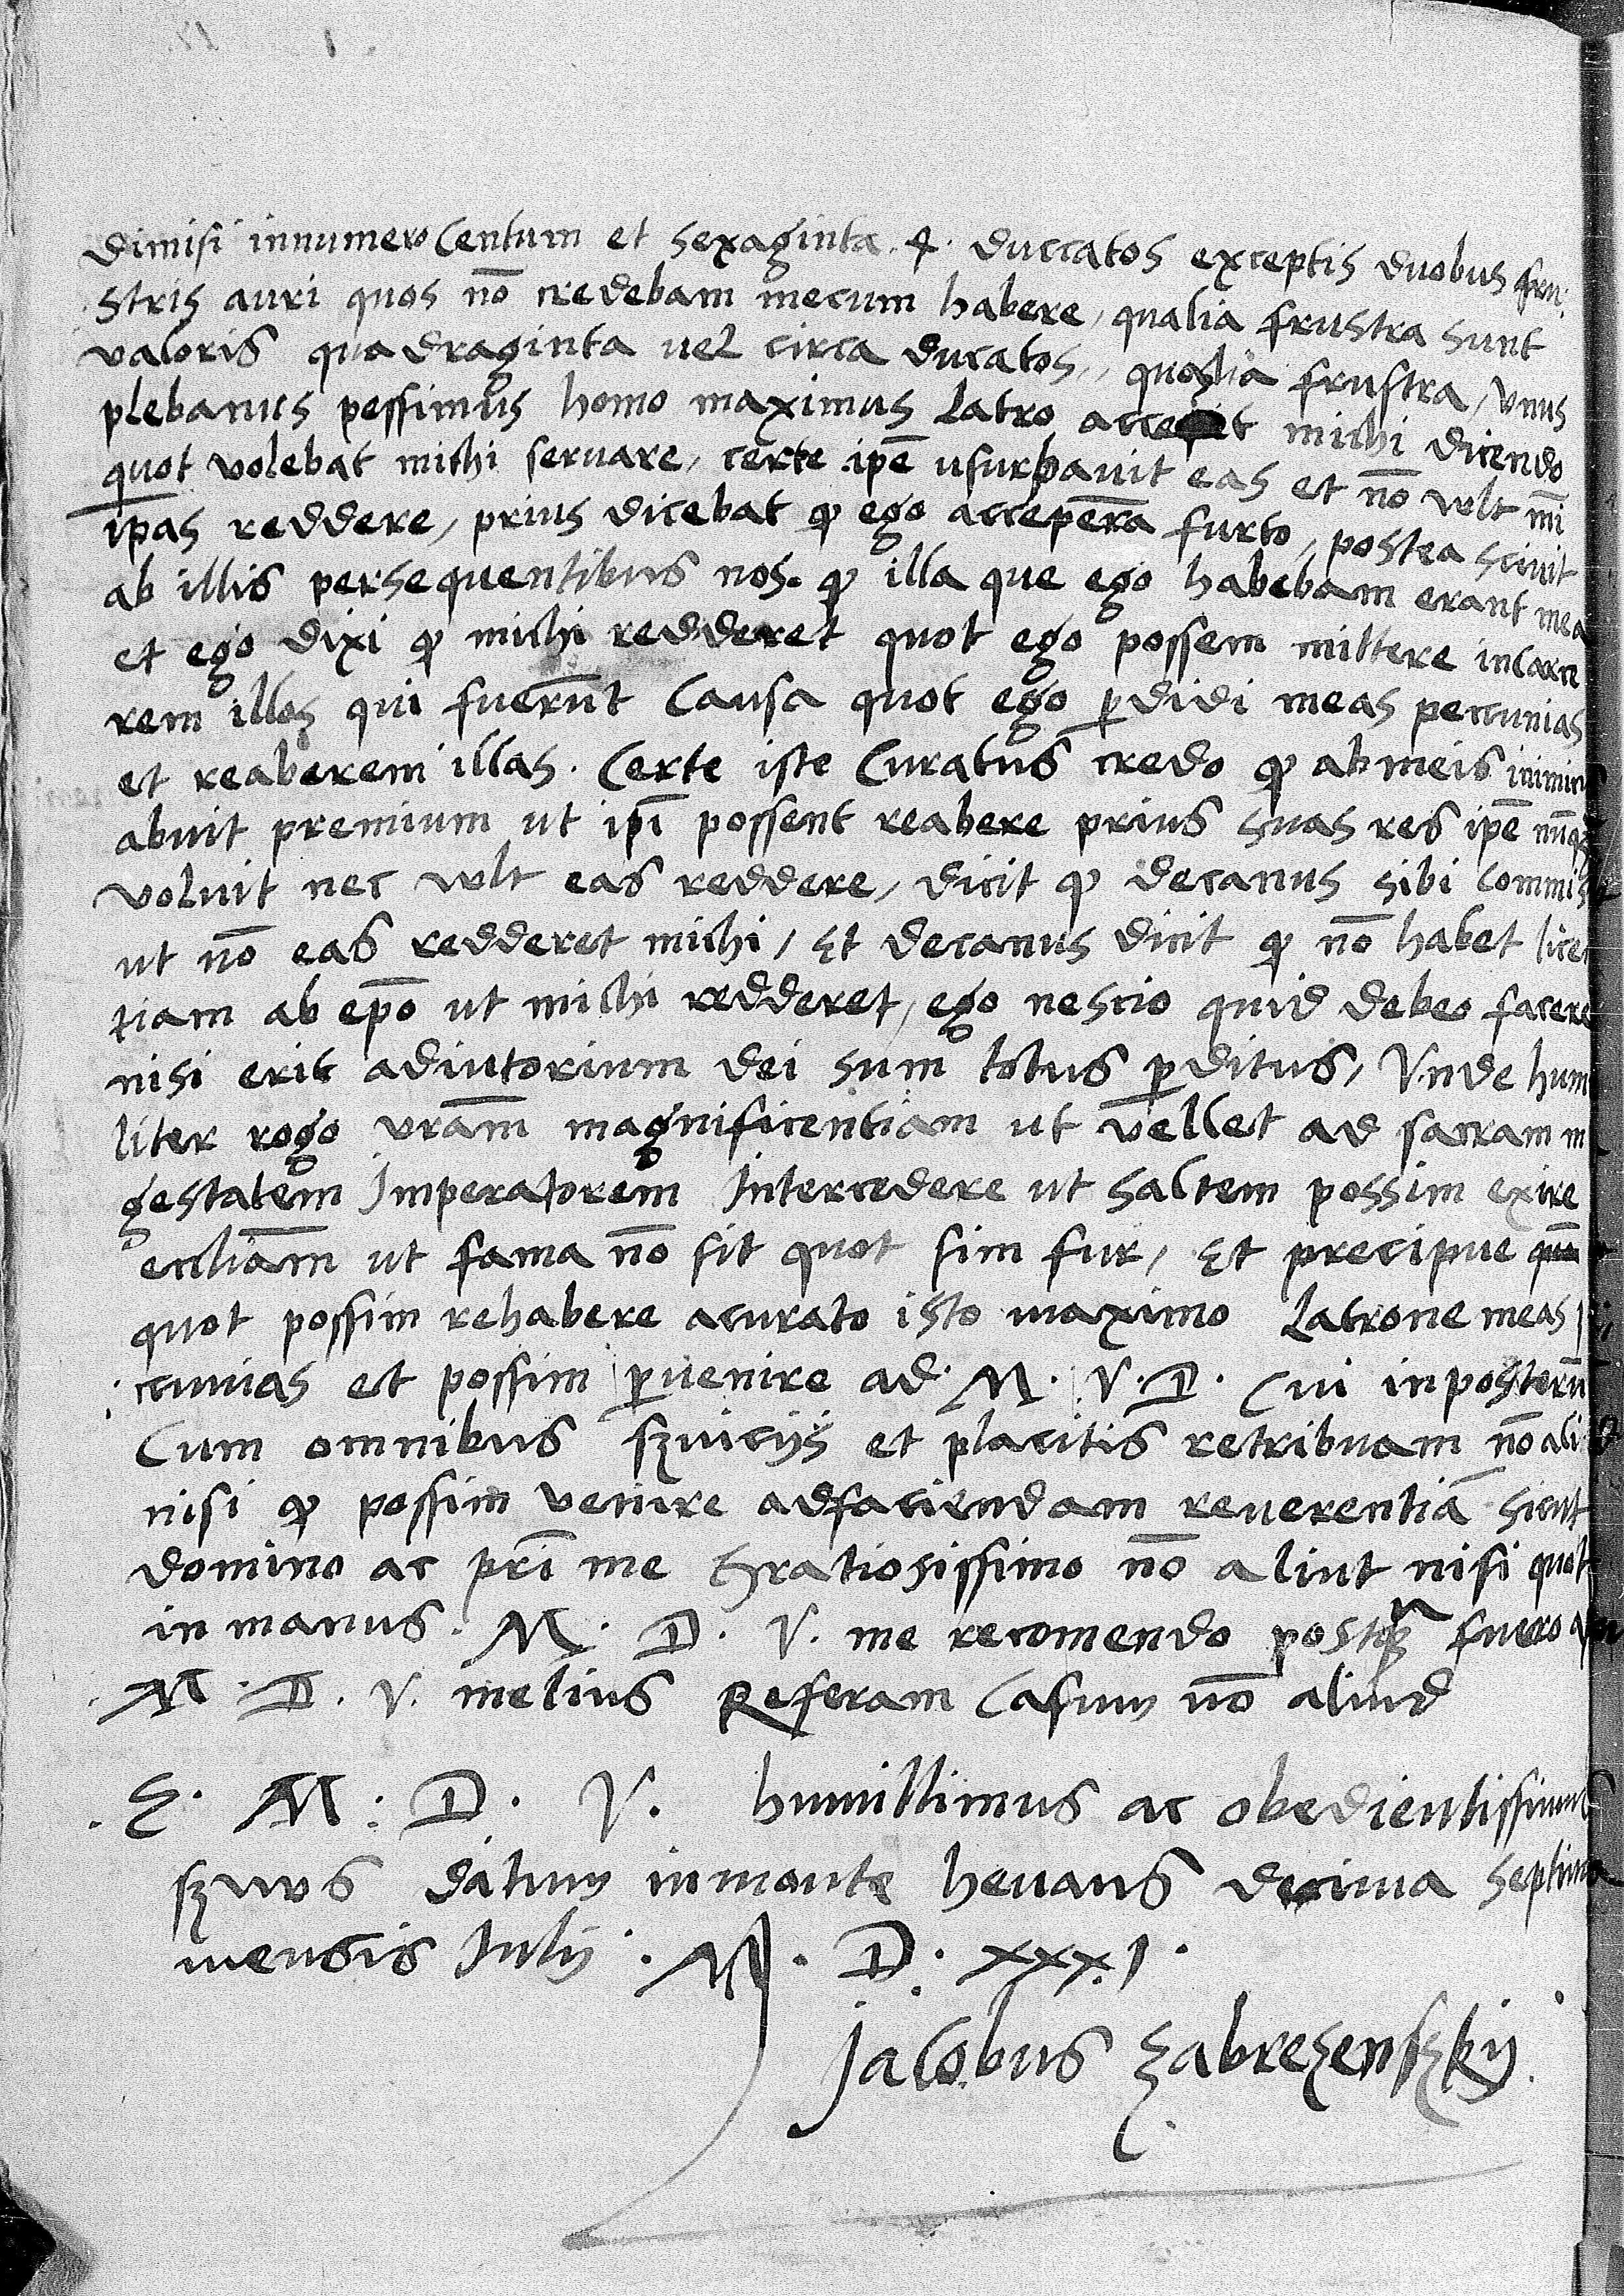 dimisi innumero Centum et sexaginta .4. duccatos exceptis duobus fru:
stris auri quos nō credebam mecum habere, qualia frustra sunt
valoris quadraginta uel circa ducatos,, qualia frustra, vnus
plebanus pessimus homo maximus Latro accepit michi dicendo
quot volebat michi seruare, certe ip̄e usurpauit eas et nō vult m̄i
ip̄as reddere, prius dicebat ꝙ ego acceperā furto, postea sciuit
ab illis persequentibus nos. ꝙ illa que ego habebam erant mea
et ego dixi ꝙ michi redderet quot ego possem mittere incarce
rem illos qui fuerūt Causa quot ego ꝑdidi meas peccunias
et reaberem illas. Certe iste Curatus credo ꝙ ab meis inimicis
abuit premium ut ip̄i possent reabere prius suas res ip̄e nūqꝫ
voluit nec vult eas reddere, dicit ꝙ decanus sibi commis
ut nō eas redderet michi, Et decanus dicit ꝙ nō habet licen
tiam ab ep̄o ut michi redderet, ego nescio quid debeo facere
nisi erit adiutorium dei sum totus ꝑditus, Vnde humi
liter rogo vr̄am magnificentiam ut vellet ad sacram m
gestatem Imperatorem Intercedere ut saltem possim exire
etiām ut fama nō sit quot sim fur, Et precipue
quot possim rehabere acurato isto maximo Latrone meas
cunias et possim ꝑuenire ad. M. V. D. Cui inposterū
Cum omnibus ẜuicijs et placitis retribuam nō ali
nisi ꝙ possim venire adfaciendam reuerentiā sicut
domino ac pr̄i me Gratiosissimo nō aliut nisi quot
in manus. M. D. V. me recomendo postqꝫ fuero
M. D. V. melius Referam Casum nō aliud
E. M. D. V. humillimus ac obedientissimus
ẜuus datum inmonte henaus decima septima
mensis Iulij . M. D. XXXI.
Jacobus Zabrezenszkij.